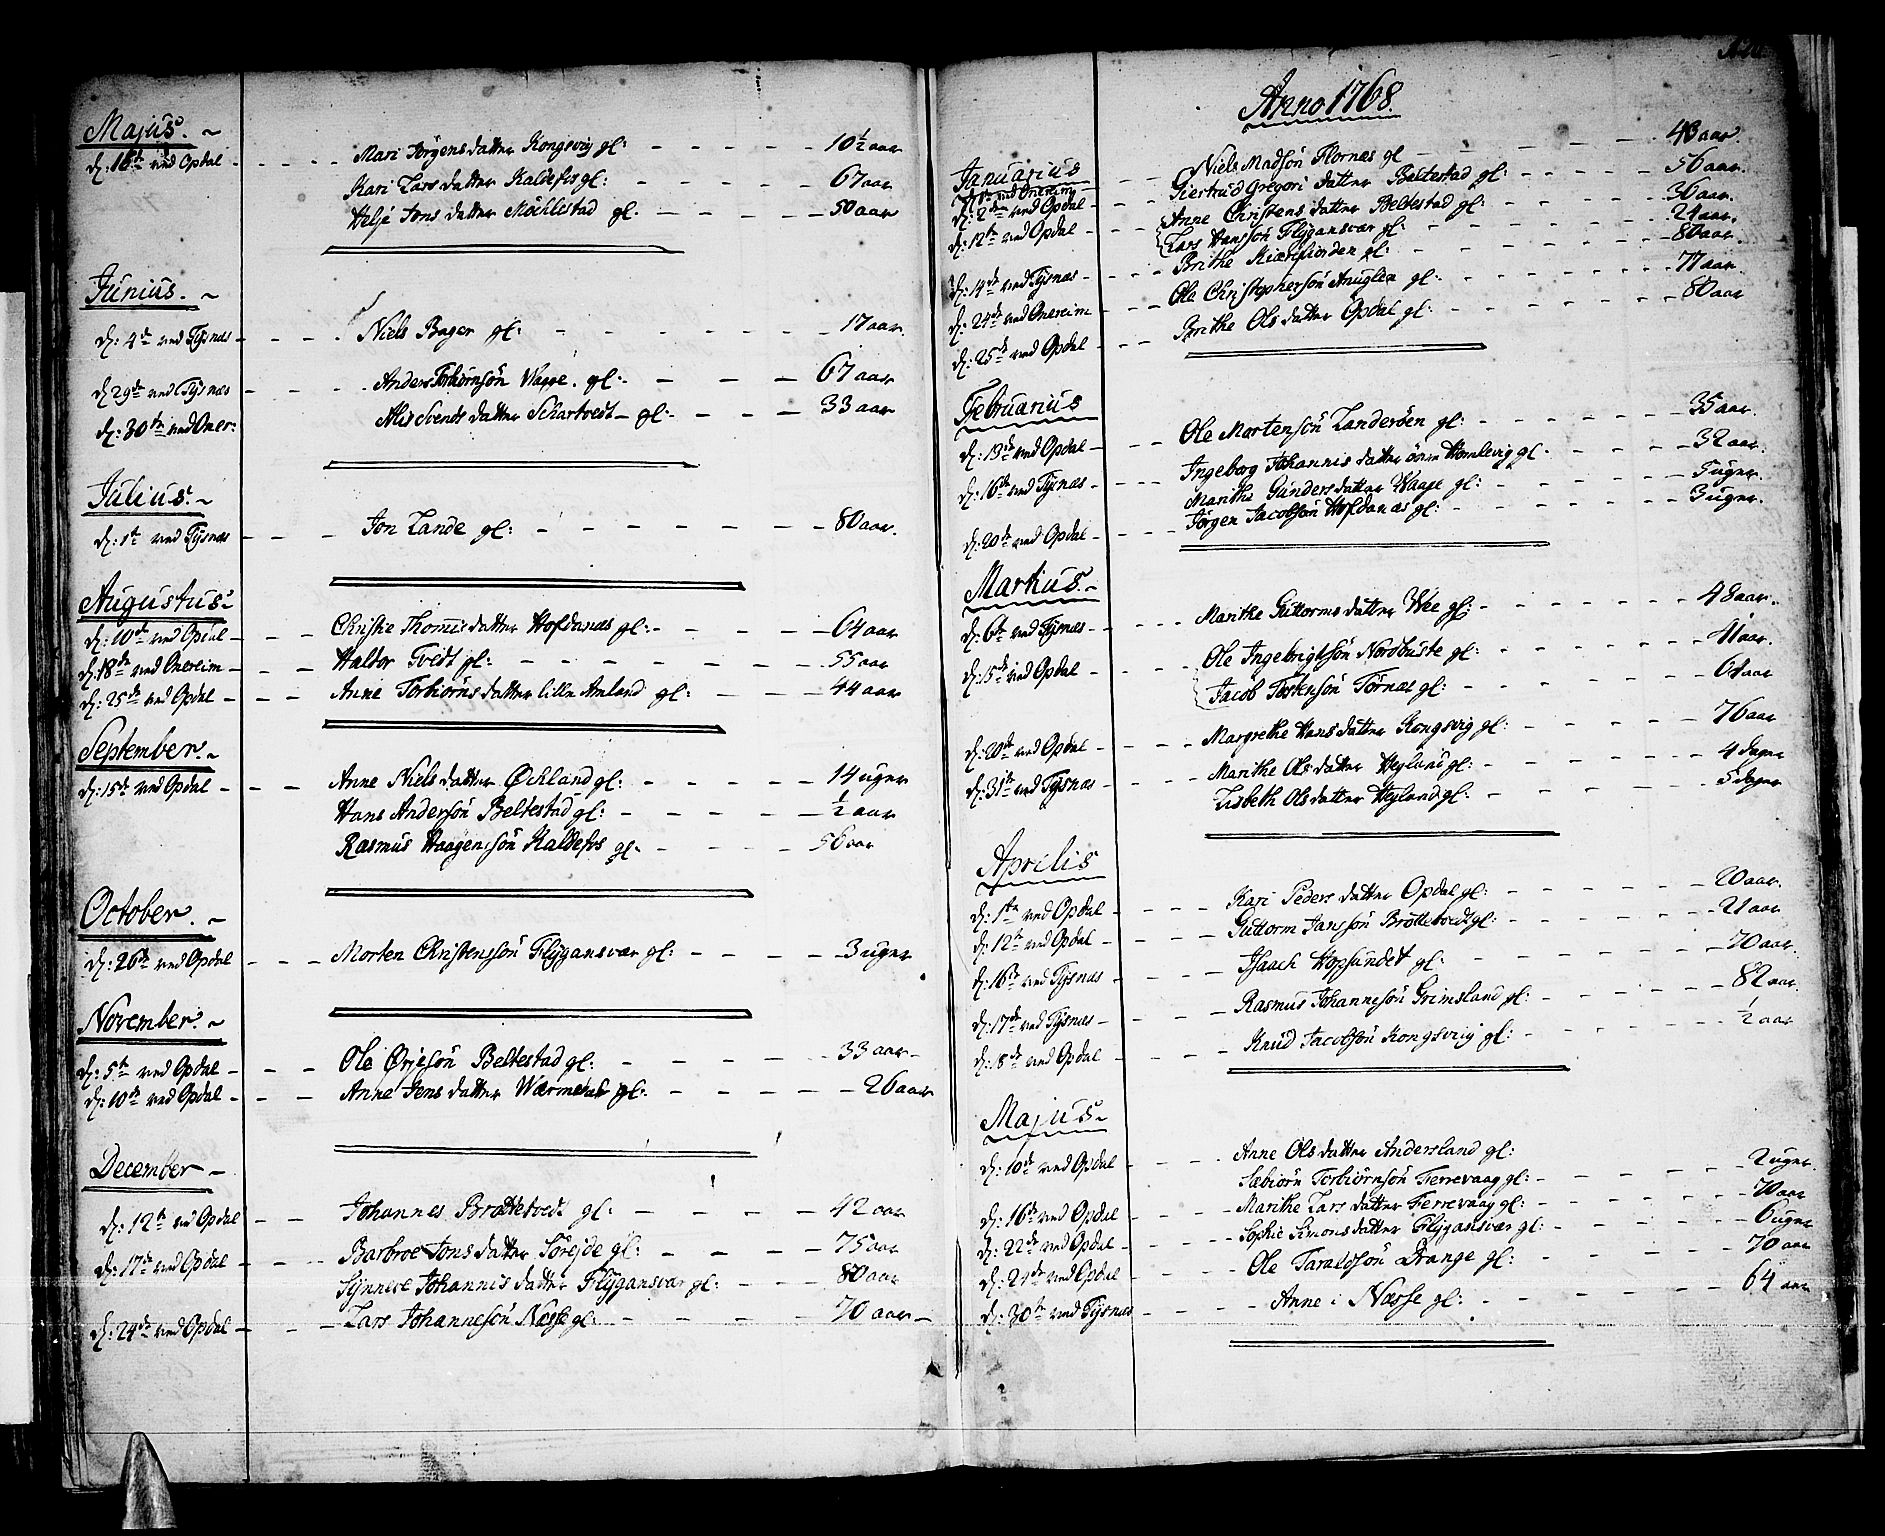 Majus.
d: 16de ved Opdal - - - Mari Jørgens datter Kongsvig gl: - - - 10½ aar
Kari Lars datter Kaldefos gl: - - - 67 aar
Helje Jons datter Møchlestad gl: - - - 50 aar
Junius.
d: 4de ved Tysnæs - - - Niels Bager gl: - - - 17 aar
d: 29de ved Tysnæs - - - Anders Torbiørnsøn Wagge. gl: - - - 67 aar
d: 30te ved Oner: Alis Svends datter Schartvedt gl: - - - 33 aar
Julius.
d: 1te ved Tysnæs - - - Jon Lande gl: - - - 80 aar.
Augustus.
d: 10de ved Opdal - - - Christie Thomis datter Hofdanæs gl: - - - 64 aar
d: 18de ved Onereim - - - Haldor Tvedt gl: - - - 55 aar
d: 25de ved Opdal - - - Anne Torbiørns datter lille Amland gl: - - - 44 aar
September.
d: 15de ved Opdal - - - Anne Niels datter Øckland gl: - - - 14 uger
Hans Andersøn Beltestad gl: - - - ½ aar
Rasmus Haagensøn Kaldefos gl: - - - 56 aar
October.
d: 26de ved Opdal - - - Morten Christensøn Flygansvær gl: - - - 3 uger
November.
d: 5te ved Opdal - - - Ole Ørjesøn Beltestad gl: - - - 33 aar
d: 10de ved Opdal - - - Anne Jens datter Wærmedal gl: - - - 26 aar
December
d: 12te ved Opdal - - - Johannes Brottetvedt gl: - - - 42 aar
d: 17de ved Opdal - - - Barbroe Jons datter Sørejde gl: - - - 75 aar
Synneve Johannis datter Flygansvær gl: - - - 80 aar
d: 24de ved Opdal - - - Lars Johannesøn Næsse gl: - - - 70 aar
Anno 1768.
Januarius
ved Onereim - - - Niels Madsøn Flornæs gl - - - 43 aar.
d: 2den ved Opdal - - - Giertrud Gregori datter Beltestad gl: - - - 56 aar.
d: 12te ved Opdal - - - Anne Christens datter Beltestad gl: - - - 36 aar.
Lars Hanssøn Flygansvær gl: - - - 24 aar.
d: 14de ved Tysnæs - - - Brithe Kierefiorden gl: - - - 80 aar.
d: 24de ved Onereim - - - Ole Christophersøn Anuglen gl: - - - 77 aar.
d: 25de ved Opdal - - - Brithe Ols datter Opdal gl: - - - 80 aar
Februarius
d: 13de ved Opdal - - - Ole Mortensøn Landerøen gl: - - - 35 aar.
d: 16de ved Tysnæs - - - Ingeborg Johannis datter øvre Hamlevig gl - - - 32 aar.
Marithe Gunders datter Waage gl: - - - 5 uger.
d: 20de ved Opdal - - - Jørgen Jacobsøn Hofdanæs gl: - - - 3 uger.
Martius.
d: 6te ved Tysnæs - - - Marithe Guttorms datter Wee gl: - - - 48 aar.
d: 15de ved Opdal - - - Ole Ingebrigtsøn Nordbuste gl: - - - 41 aar.
Jacob Tostensøn Tornæs gl: - - - 64 aar
d: 20de ved Opdal - - - Margrethe Hans datter Kongsvig gl: - - - 76 aar
d: 31te ved Tysnæs - - - Marithe Ols datter Heyland gl: - - - 4 dager
Lisbeth Ols datter Heyland gl: - - - 5 dager
Aprilis
d: 1te ved Opdal - - - Kari Peders datter Opdal gl: - - - 20 aar.
d: 12te ved Opdal - - - Guttorm Jansøn Brottetvedt gl: - - - 21 aar
d: 16de ved Tysnæs - - - Isaach Hopsundet gl: - - - 70 aar.
d: 17de ved Tysnæs - - - Rasmus Johannesøn Grimsland gl: - - - 82 aar.
d: 18de ved Opdal - - - Knud Jacobsøn Kongsvig gl: - - - ½ aar
Majus.
d: 10de ved Opdal - - - Anne Ols datter Andersland gl:
Sæbiørn Torbiørnsøn Ferrevaag gl: - - - 2 uger.
d: 16de ved Opdal - - - Marithe Lars datter Ferrevaag gl: - - - 70 aar
d: 22de ved Opdal - - - Sophie Simons datter Flygansvær gl: - - - 6 uger
d: 24de ved Opdal - - - Ole Taraldsøn Drange gl: - - - 70 aar
d: 30te ved Tysnæs - - - Anne i Næsse gl: - - - 64 aar